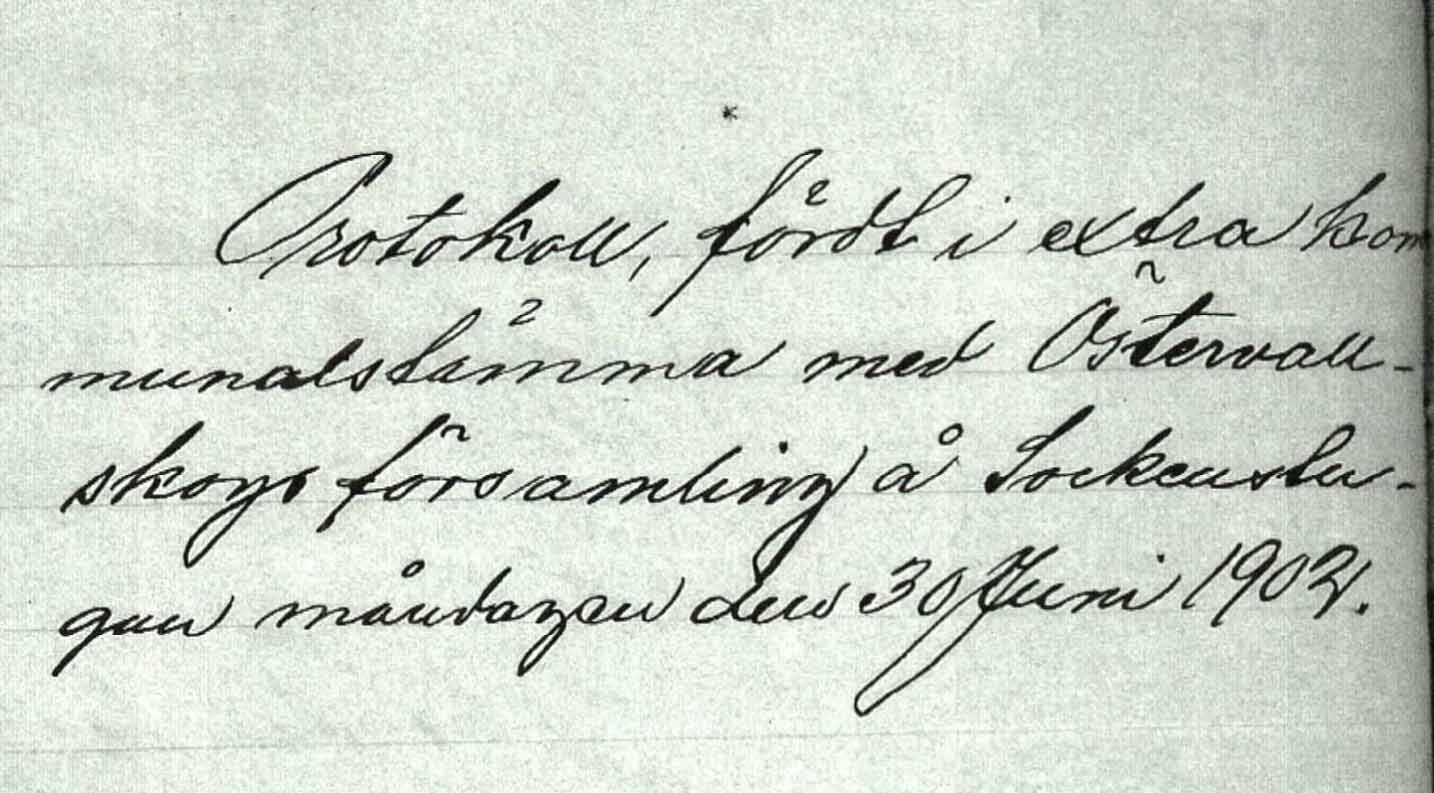 Protokoll, fördt i extra kom
munalstämma med Östervall-
skogs församling å Sockenstu-
gan måndagen den 30 Juni 1902.